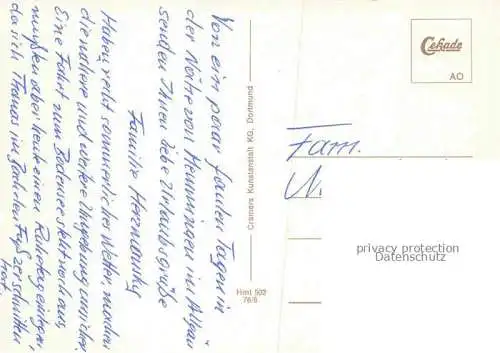 Von ein paar faulen Tagen in
der Nähe von Memmingen im Allgäu
senden Ihnen liebe Urlaubsgrüße
Familie
Haben recht sommerliches Wetter, machen
die nähere und weitere Umgebung unsicher.
Eine Fahrt zum Bodensee steht noch aus,
mußten aber heute einen Ruhetag einlegen,
da sich Thomas im Bach den Fuß zerschnitten
hat.
Cramers Kunstanstalt KG, Dortmund
Hmt 502
76/8
Cekade
AO
Fam.
privacy protection
Datenschutz